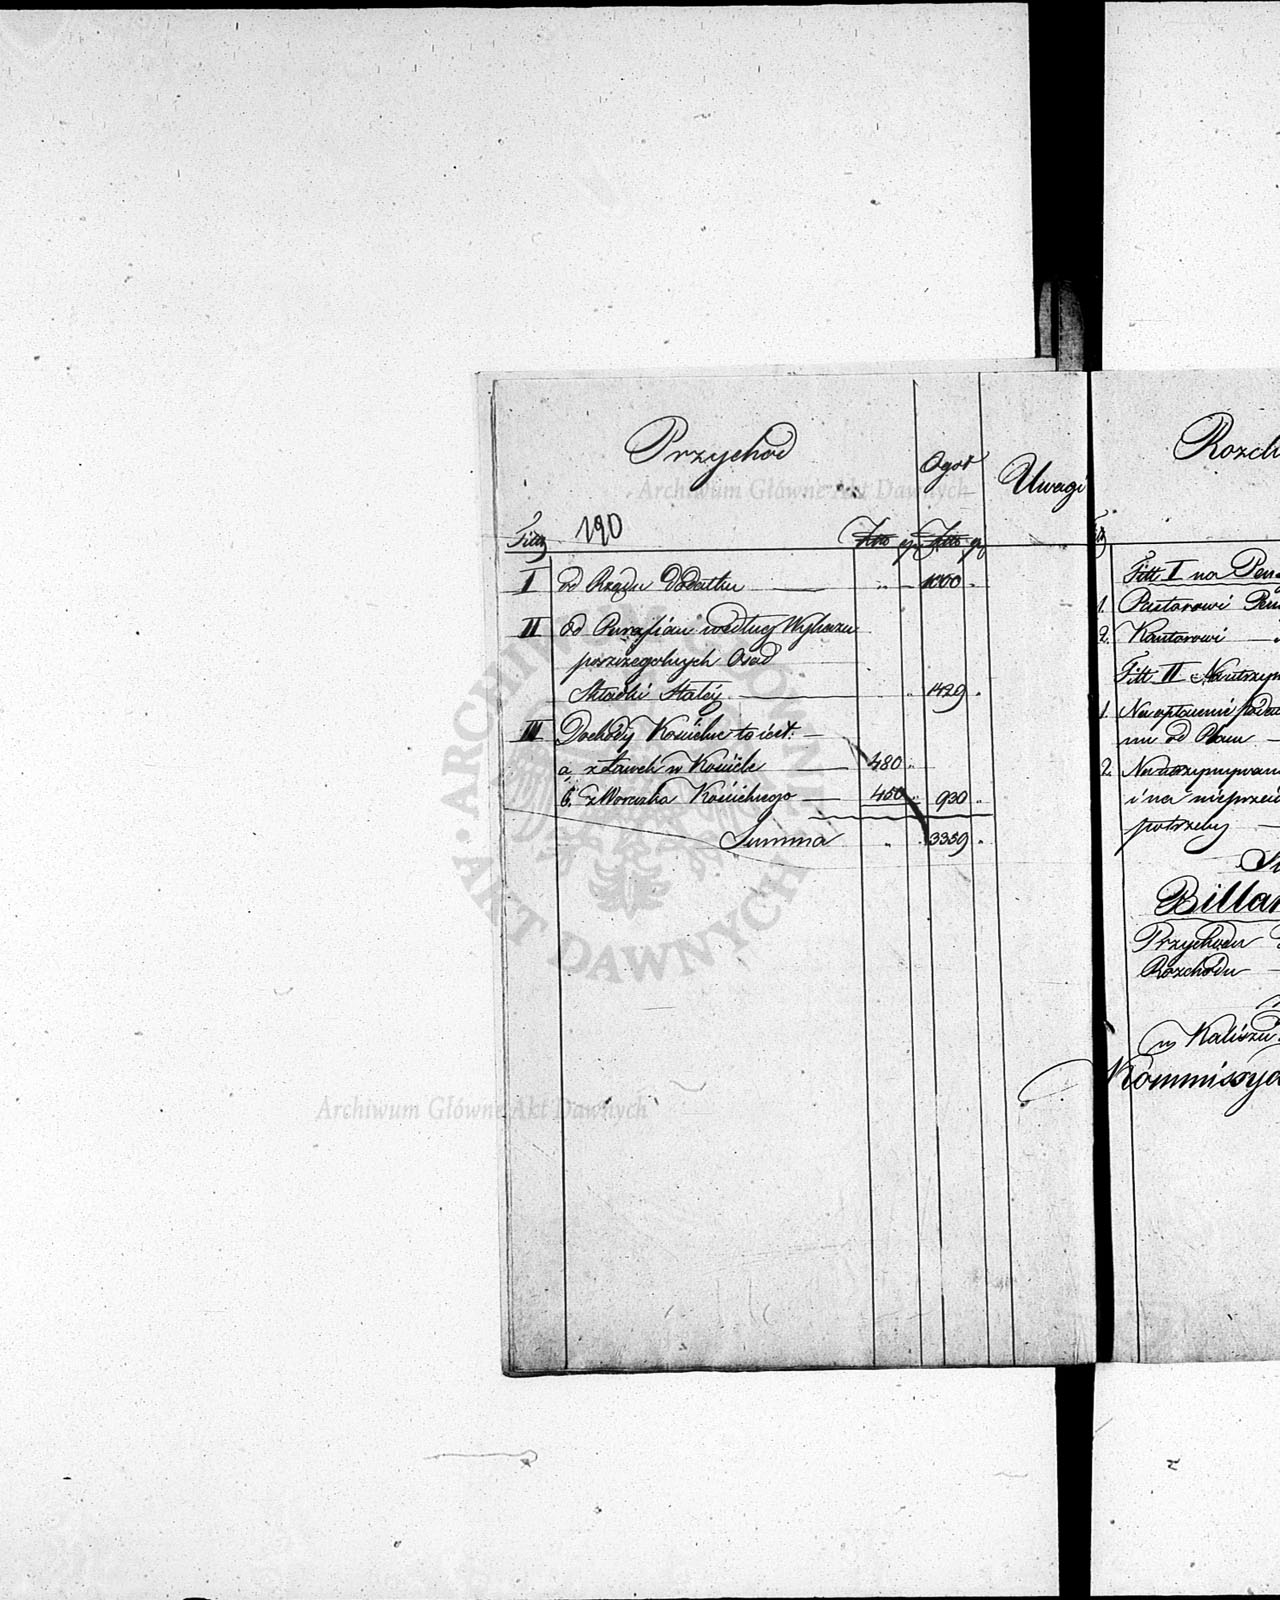 Przychod
Ogoł
Uwagi
Archiwum Główne Akt Dawnych
190
Titt
Złto gr Złto gr
I od Rządu Dodatku — „ 1000 „
II Od Parafian według Wykazu
poszczegolnych Osad
Składki Stałéj — „ 1429 „
III Dochody Kościelne to iest: —
a, z Ławek w Kościele — 480 „
b. z Woreczka Kościelnego — 450 „ 930 „
Summa „ 3359 „
ARCHIWUM GŁÓWNE AKT DAWNYCH
Archiwum Główne Akt Dawnych
Rozch
Titt I na Pen
1. Pastorowi Pen
2. Kantorowi — „
Titt II Na utrzym
1. Na opłacenie
od — 
2. Na utrzymywani
i na nieprzewi
potrzeby —
Su
Billan
Przychodu
Rozchodu —
w Kaliszu
Kommissya